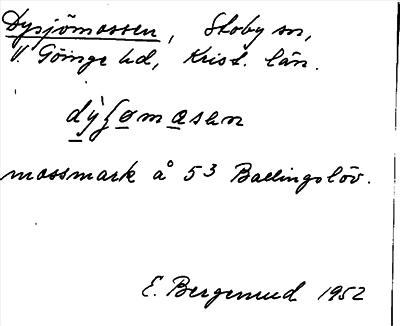 Dysjömossen, Stoby sn,
V. Göinge hd, Krist. län.
dỳʃomasen
mossmark å 5³ Ballingslöv.
E. Bergemud 1952